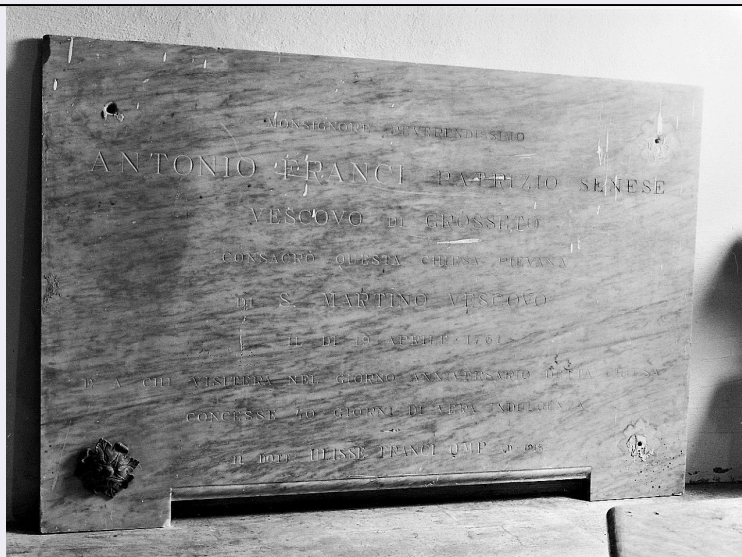 MONSIGNORE REVERENDISSIMO
ANTONIO FRANCI PATRIZIO SENESE
VESCOVO DI GROSSETO
CONSACRÒ QUESTA CHIESA PIEVANA
DI S. MARTINO VESCOVO
IL DI 19 APRILE
E A CHI VISITERÀ NEL GIORNO ANNIVERSARIO DETTA CHIESA
CONCESSE 40 GIORNI DI VERA INDULGENZA
IL DOTT. ULISSE FRANCI